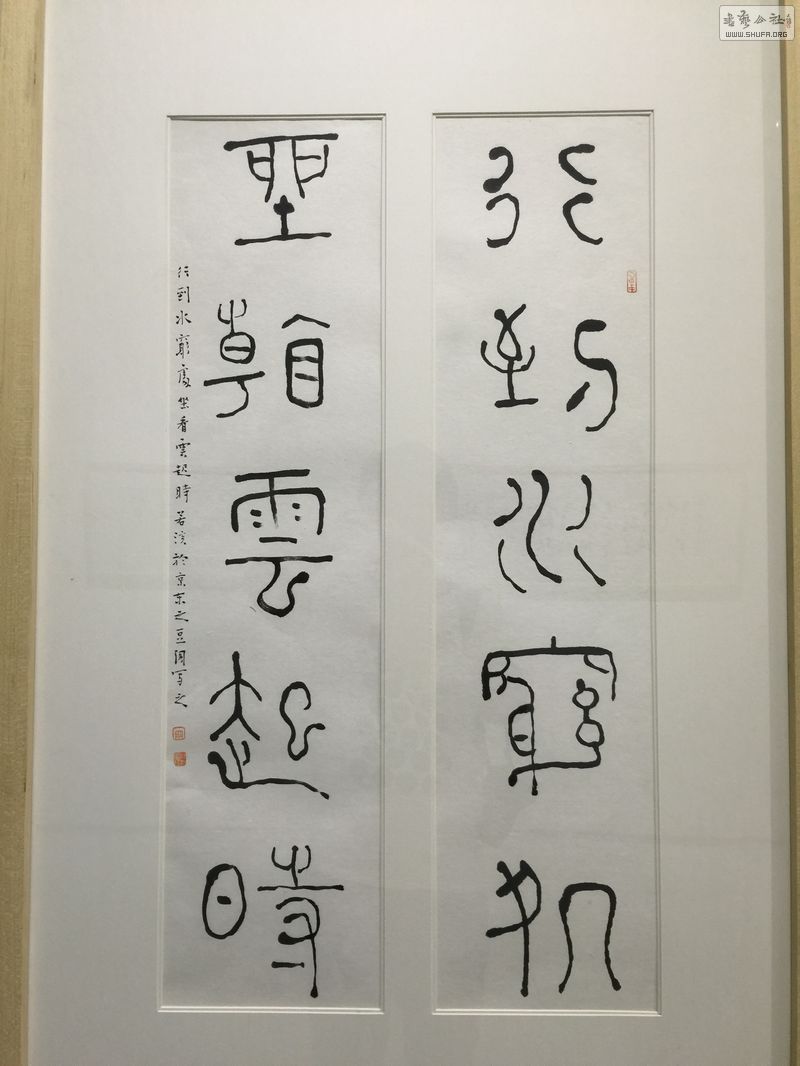 行到水窮処
坐看雲起時
行到水窮處坐看雲起時若於京东之豆閣写之
书艺公社
WWW.SHUFA.ORG